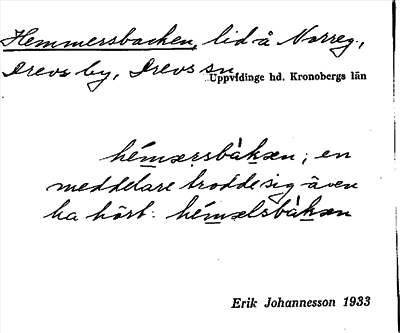 Hemmersbacken, lid å Norreg,
Drevs by, Drevs sn
Uppvidinge hd. Kronobergs län
hémærsbàkæn; en
meddelare trodde sig även
ha hört: hémælsbàkæn
Erik Johannesson 1933